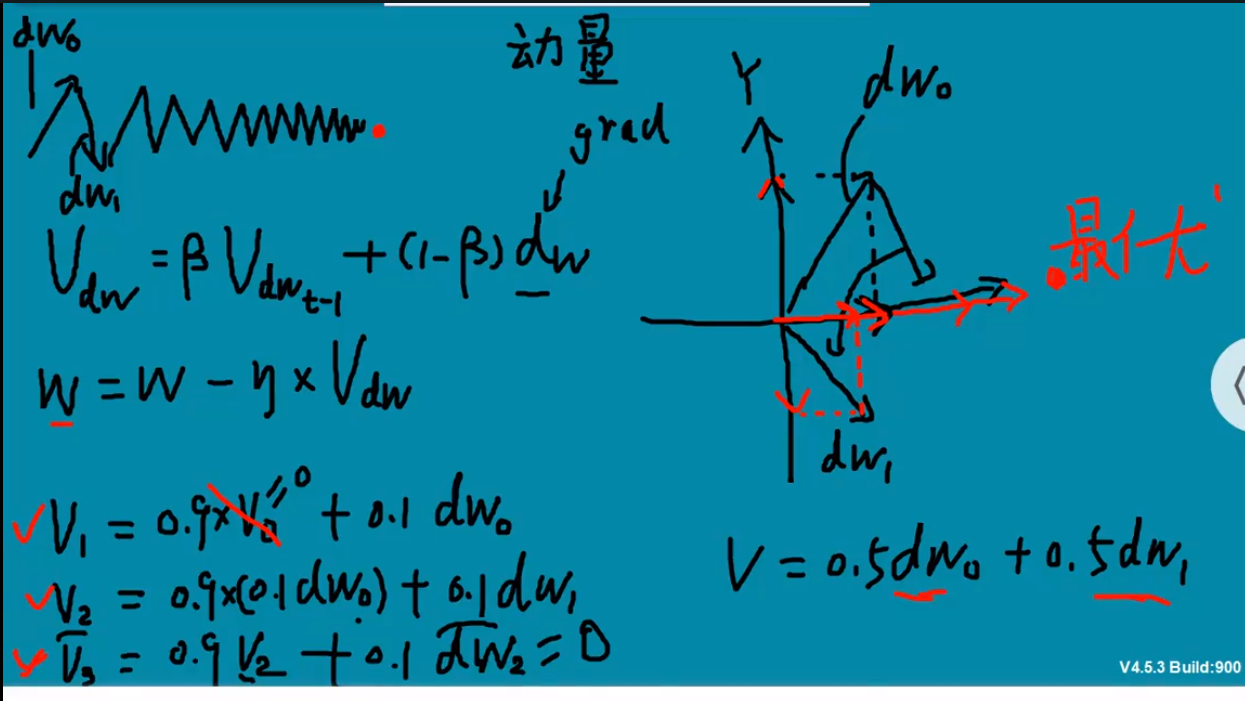 dw₀
动量
grad
dw₁
V_dw = β V_dw_t-1 + (1-β) dw
w = w - η × V_dw
V₁ = 0.9×V₀=0 + 0.1 dw₀
V₂ = 0.9×(0.1dw₀) + 0.1dw₁
V₃ = 0.9 V₂ + 0.1 dw₂=0
Y
dw₀
最优
dw₁
V = 0.5dw₀ + 0.5dw₁
V4.5.3 Build:900